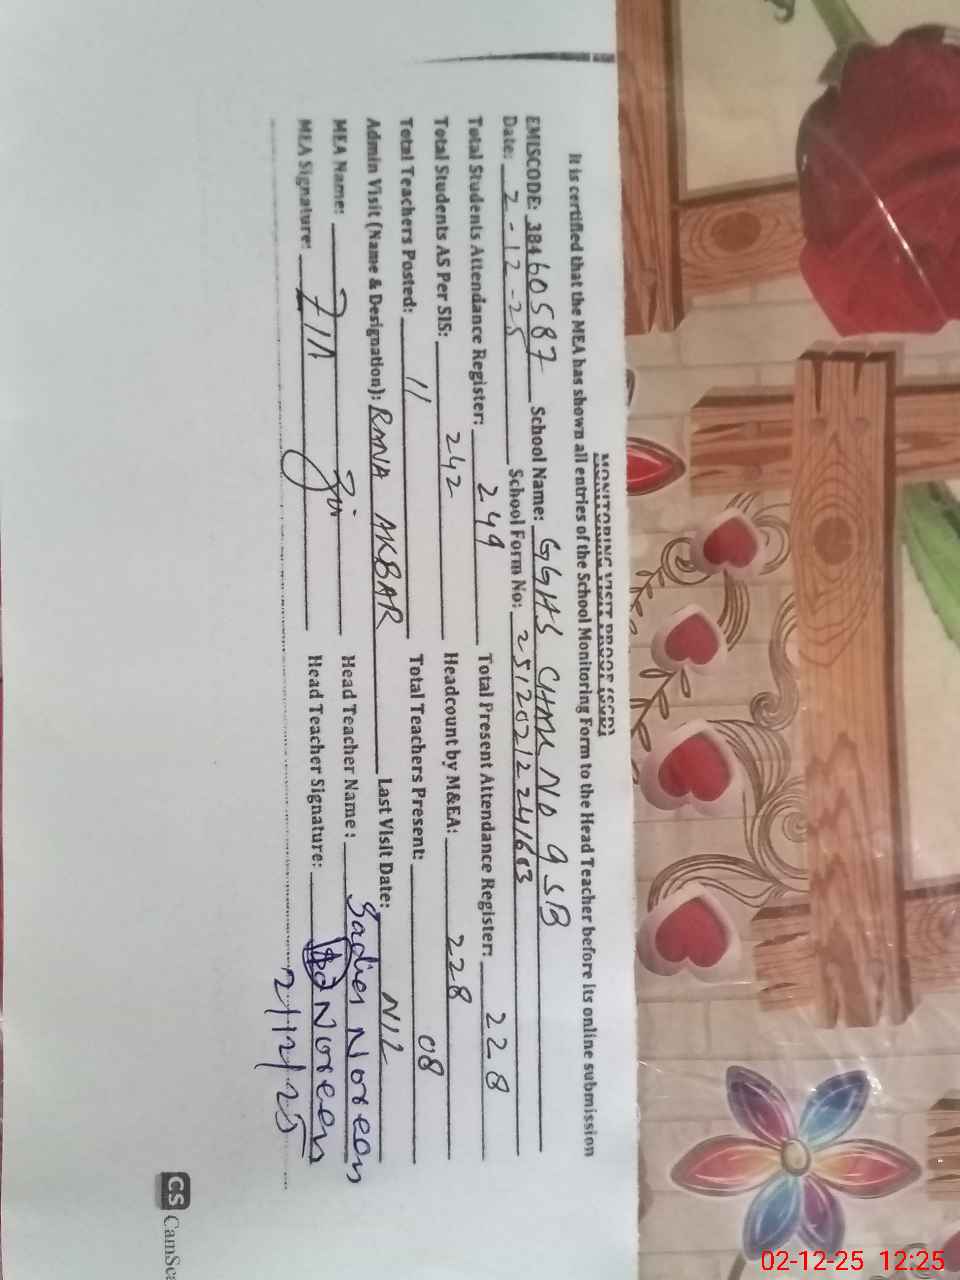 MONITORING VISIT PROOF (SGD)
It is certified that the MEA has shown all entries of the School Monitoring Form to the Head Teacher before its online submission
EMISCODE: 38460587 School Name: GGHS CHAK NO 9 SB
Date: 2-12-25 School Form No: 251202122241603
Total Students Attendance Register: 249 Total Present Attendance Register: 228
Total Students AS Per SIS: 242 Headcount by M&EA: 228
Total Teachers Posted: 11 Total Teachers Present: 08
Admin Visit (Name & Designation): RMNA AKBAR Last Visit Date: NIL
MEA Name: Head Teacher Name: Sadia Noreen
MEA Signature: Head Teacher Signature: Noreen
2/12/25
CS CamSca
02-12-25 12:25